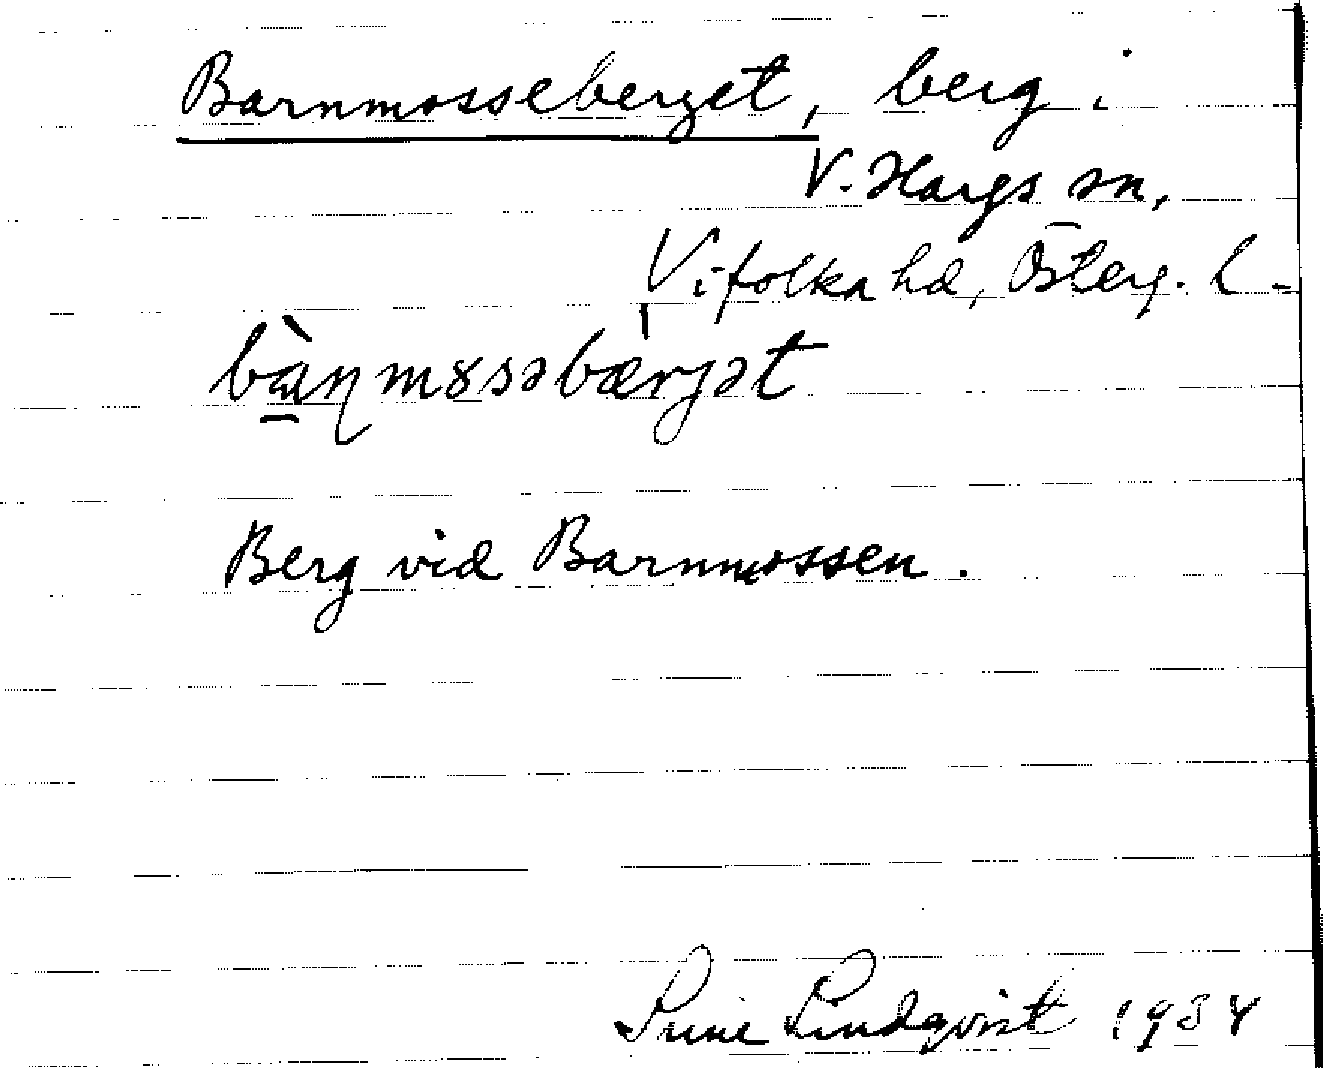 Barnmosseberget, berg i
V. Hargs sn,
Vifolka hd, Österg. l.
bàɳmɷsəbærjət
Berg vid Barnmossen.
Sune Lindqvist 1934